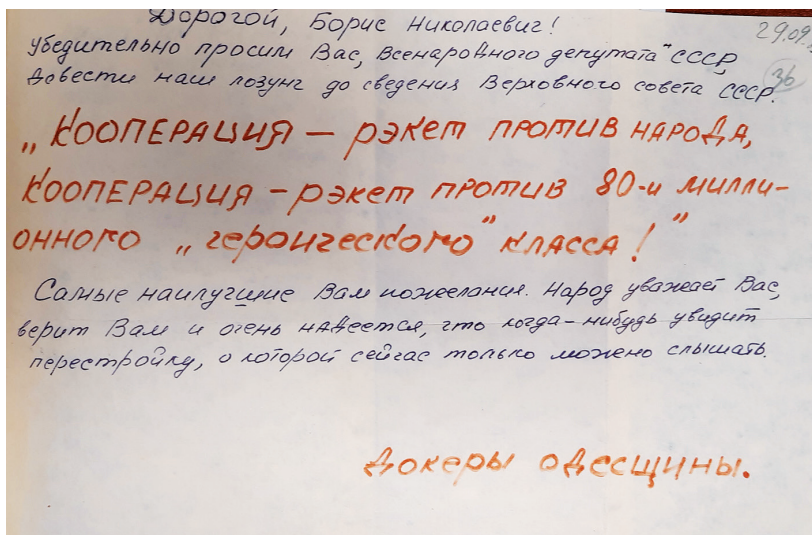 Дорогой, Борис Николаевич!
29.09.
убедительно просим Вас, Всенародного депутата СССР,
36
довести наш лозунг до сведения Верховного совета СССР.
„Кооперация – рэкет против народа,
Кооперация – рэкет против 80-и милли-
онного „героического" класса!"
Самые наилучшие Вам пожелания. Народ уважает Вас,
верит Вам и очень надеется, что когда-нибудь увидит
перестройку, о которой сейчас только можно слышать.
Докеры одесщины.